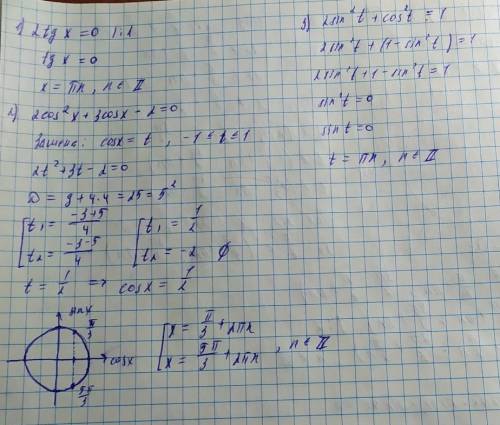 1) 2tg x = 0 |:2
tg x = 0
x = πn, n ∈ Z
2) 2cos²x + 3cosx - 2 = 0
Замена: cosx = t, -1 ≤ t ≤ 1
2t² + 3t - 2 = 0
D = 9 + 4·4 = 25 = 5²
[ t₁ = (-3+5)/4 [ t₁ = 1/2
[ t₂ = (-3-5)/4 [ t₂ = -2 ∅
t = 1/2 => cosx = 1/2
sinx
π/3
cosx
5π/3
[ x = π/3 + 2πn
[ x = 5π/3 + 2πn , n ∈ Z
3) 2sin²t + cos²t = 1
2sin²t + (1 - sin²t) = 1
2sin²t + 1 - sin²t = 1
sin²t = 0
sint = 0
t = πn, n ∈ Z